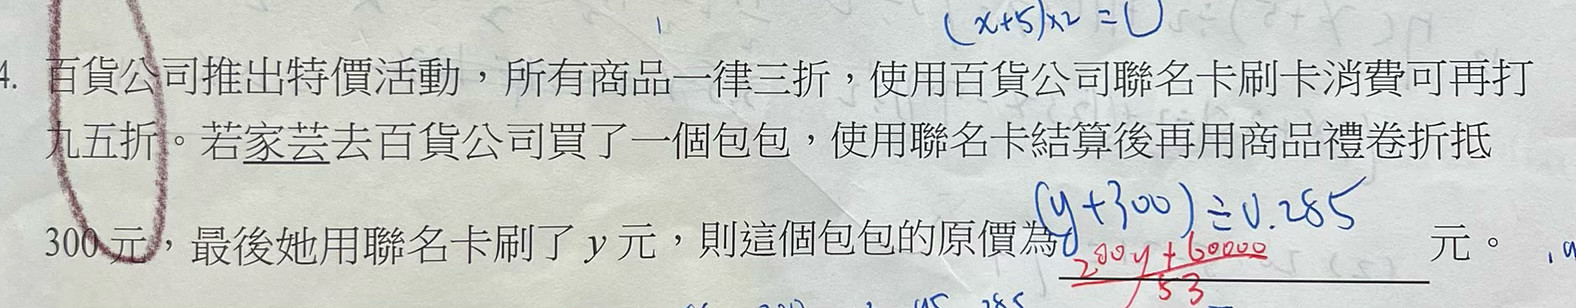 (x+5)×2=
4. 百貨公司推出特價活動，所有商品一律三折，使用百貨公司聯名卡刷卡消費可再打
九五折。若家芸去百貨公司買了一個包包，使用聯名卡結算後再用商品禮卷折抵
(y+300)÷0.285
300元，最後她用聯名卡刷了 y 元，則這個包包的原價為 元。
200y+60000
53